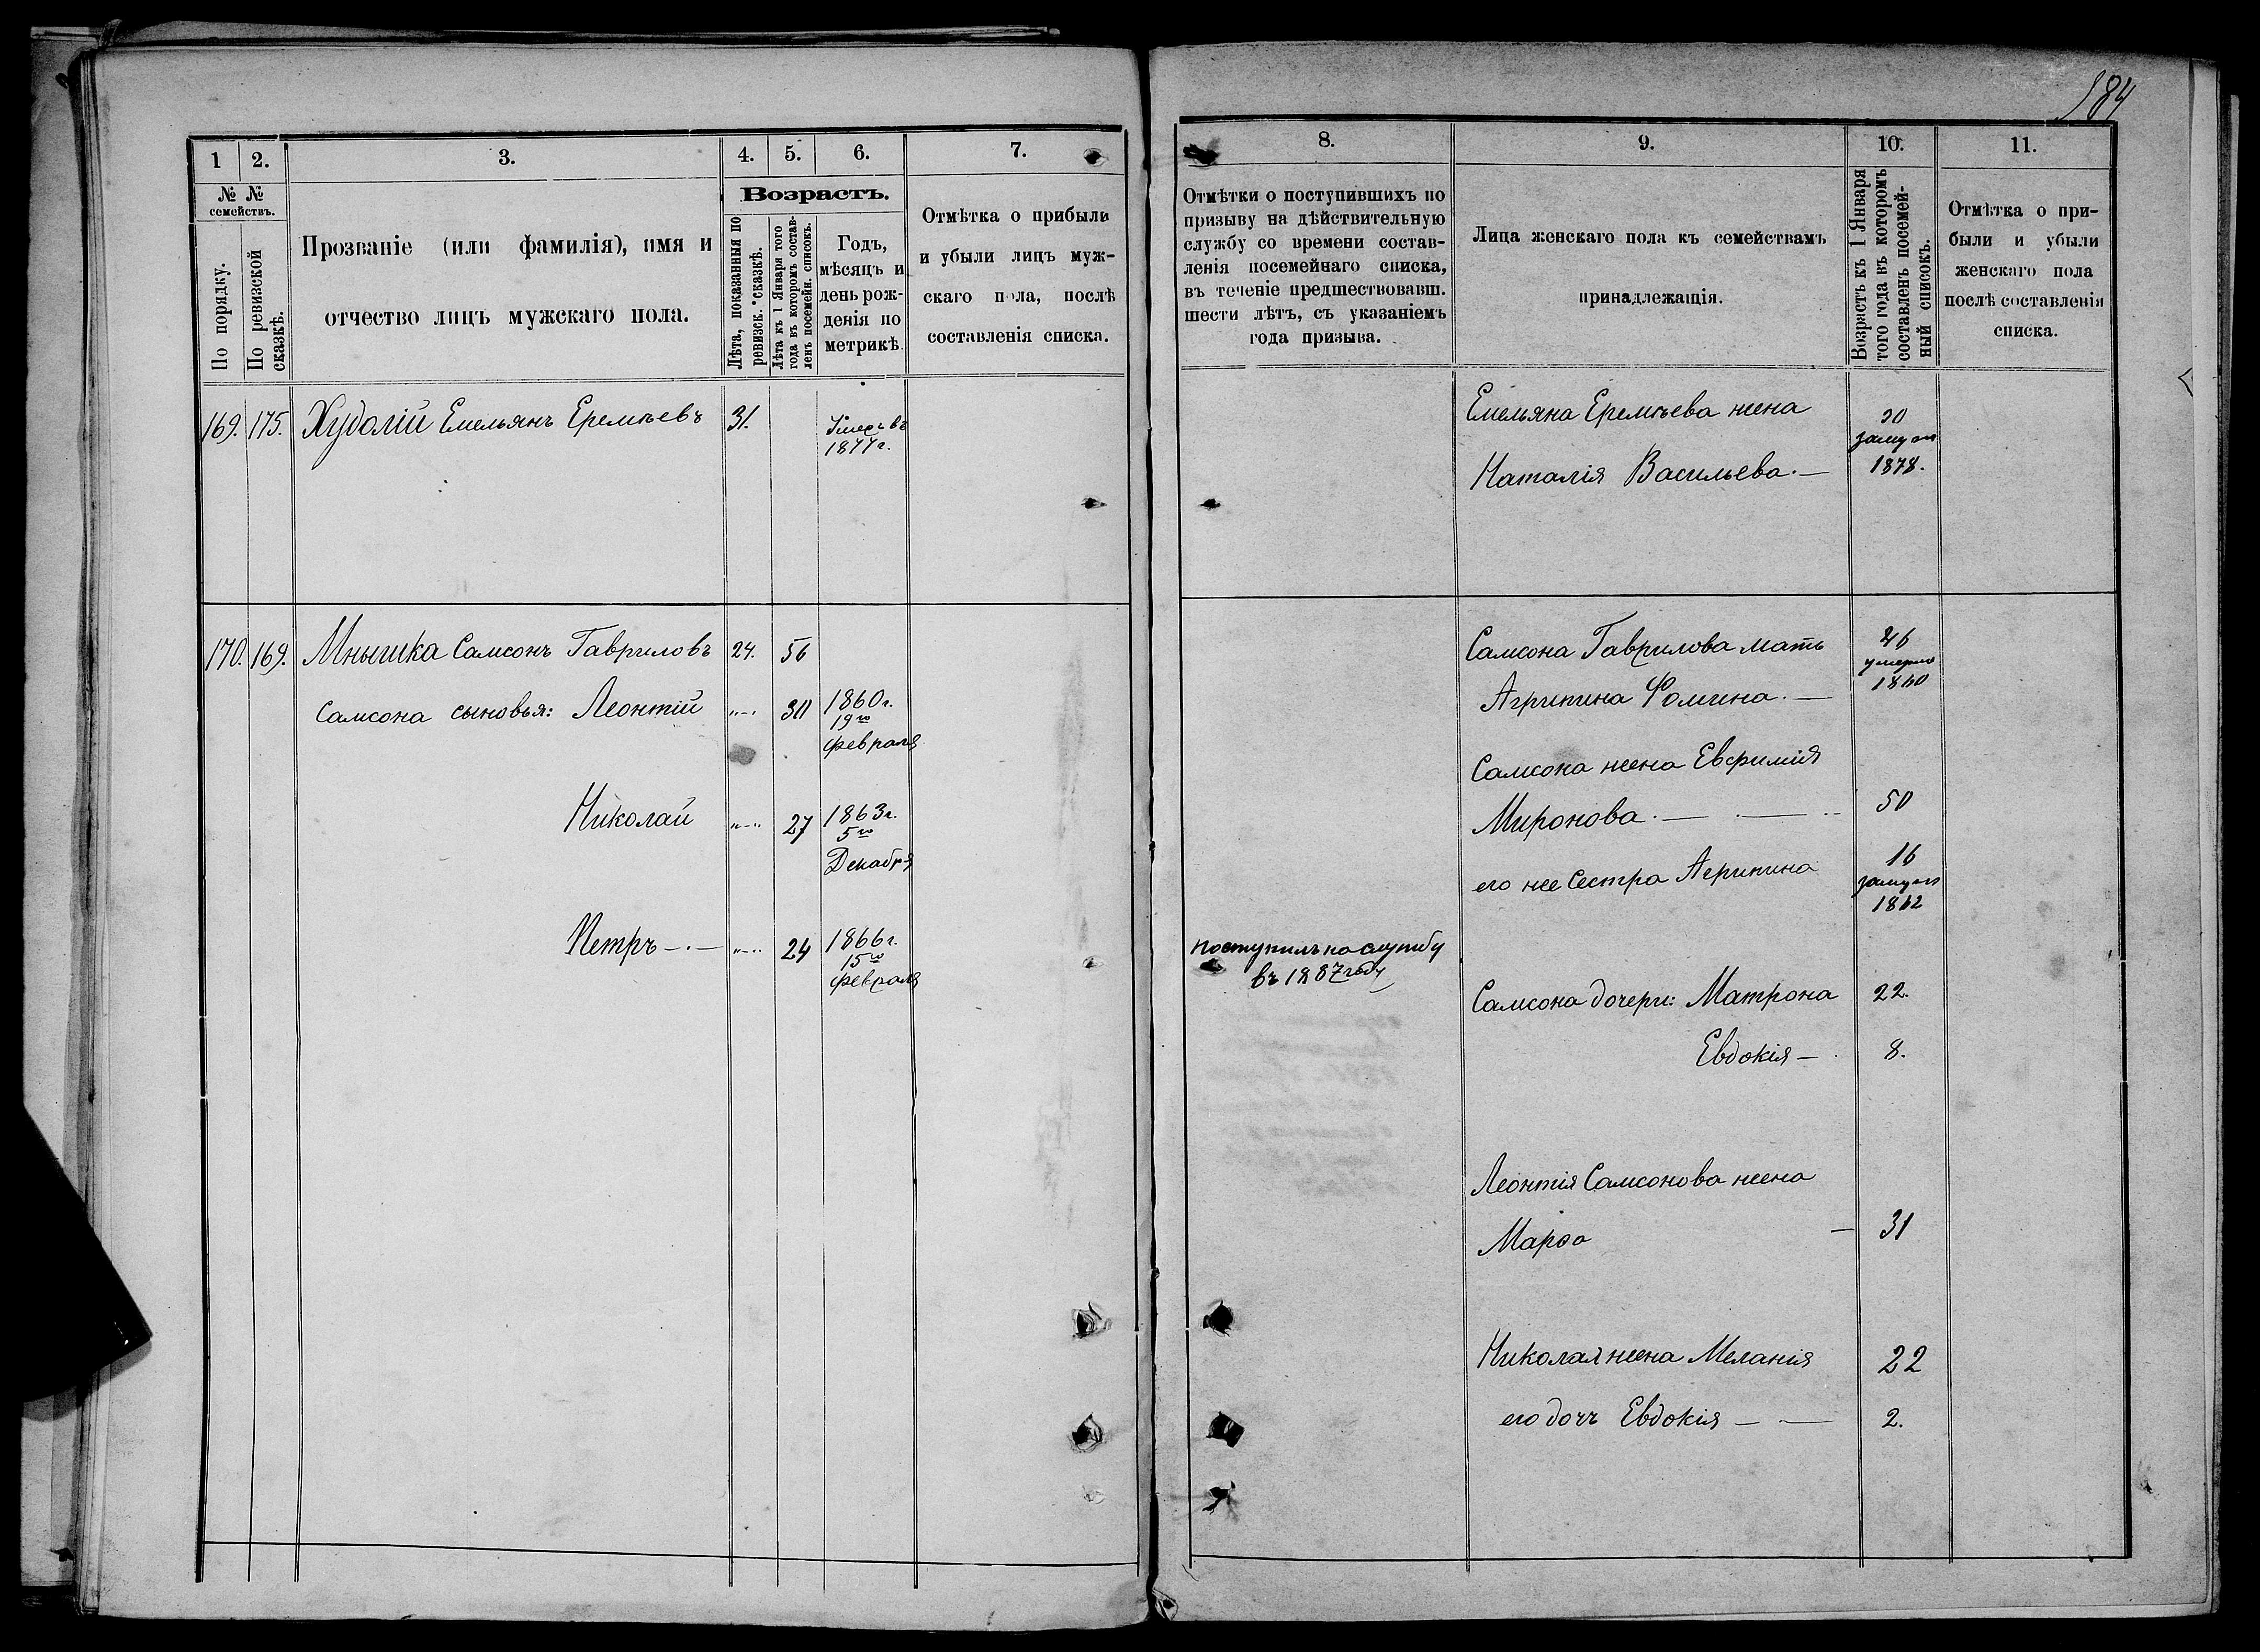 184
1
2.
3.
4.
5.
6.
7.
№ №
семействъ.
По порядку.
По ревизской
сказкѣ.
Прозваніе (или фамилія), имя и
отчество лицъ мужскаго пола.
Возрастъ.
Лѣта, показанныя по
ревизск. сказкѣ.
Лѣта къ 1 Января того
года въ которомъ состав-
ленъ посемейн. списокъ.
Годъ,
мѣсяцъ и
день рож-
денія по
метрикѣ.
Отмѣтка о прибыли
и убыли лицъ муж-
скаго пола, послѣ
составленія списка.
169. 175. Худолій Емельянъ Еремѣевъ 31.
Умеръ въ
1877 г.
170. 169. Мнышка Самсонъ Гавриловъ 24. 56
Самсона сыновья: Леонтій „—„ 30 1860 г.
19го
февраля
Николай „—„ 27 1863 г.
5го
Декабря
Петръ —.— „—„ 24 1866 г.
15го
февраля
8.
9.
10.
11.
Отмѣтки о поступившихъ по
призыву на дѣйствительную
службу со времени состав-
ленія посемейнаго списка,
въ теченіе предшествовавш.
шести лѣтъ, съ указаніемъ
года призыва.
Лица женскаго пола къ семействамъ
принадлежащія.
Возрастъ къ 1 Января
того года въ которомъ
составленъ посемей-
ный списокъ.
Отмѣтка о при-
были и убыли
женскаго пола
послѣ составленія
списка.
Емельяна Еремѣева жена
Наталія Васильева.—
замуж
1878.
Самсона Гаврилова мать
Агрипина Фомина.—
46
умерла
1860
Самсона жена Евфимія
Миронова.— 50
его же Сестра Агрипина 16
замуж
1862
поступилъ на службу
въ 1887 году
Самсона дочери: Матрона 22.
Евдокія — 8.
Леонтія Самсонова жена
Марѳа — 31
Николая жена Меланія 22
его дочь Евдокія — — 2.